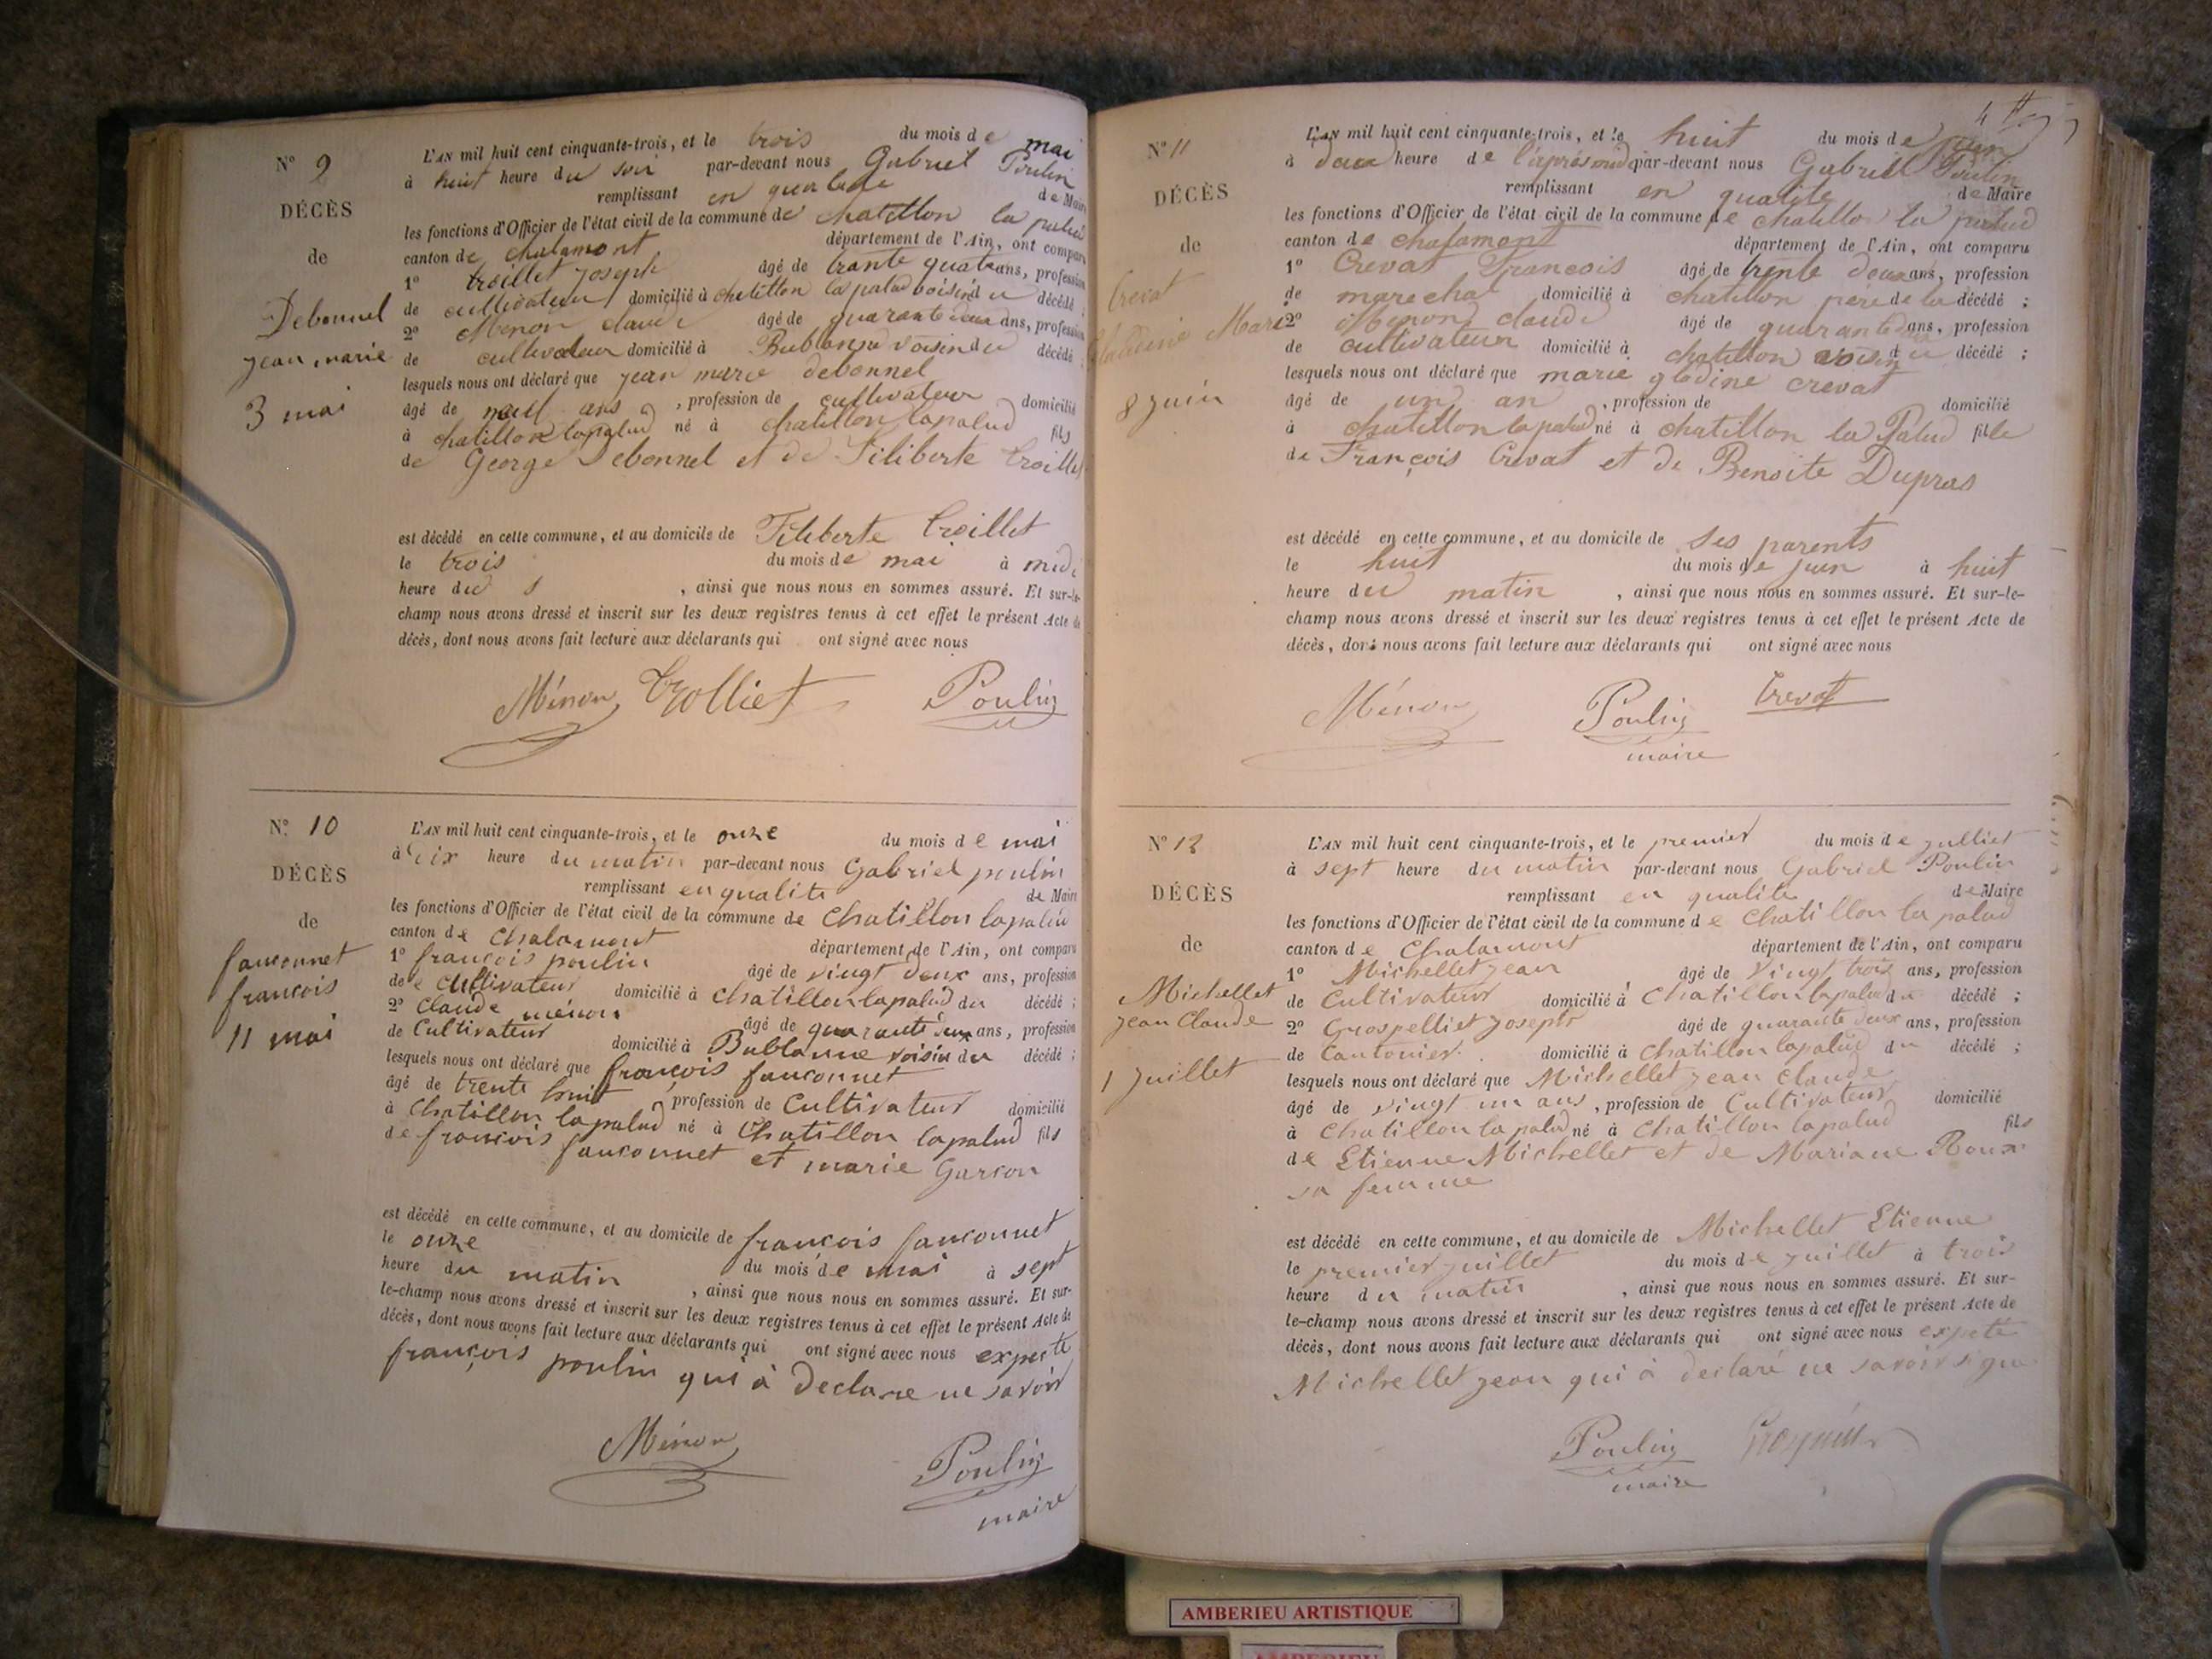 N° 9
DÉCÈS
de
Debonnel
jean marie
3 mai
L'AN mil huit cent cinquante-trois, et le trois du mois de mai
à huit heure du soir par-devant nous Gabriel Poulin
remplissant en qualite de Maire
les fonctions d'Officier de l'état civil de la commune de chatillon la palud
canton de chalamont département de l'Ain, ont comparu
1° troillet joseph âgé de trante quatre ans, profession
de cultivateur domicilié à chatillon la palud voisin du décédé ;
2° Menon claude âgé de quarante deux ans, profession
de cultivateur domicilié à Bublanne voisin du décédé ;
lesquels nous ont déclaré que jean marie debonnel
âgé de neuf ans , profession de cultivateur domicilié
à chatillon lapalud né à chatillon lapalud fils
de George Debonnel et de Filiberte troillet
est décédé en cette commune, et au domicile de Filiberte troillet
le trois du mois de mai à midi
heure du s , ainsi que nous nous en sommes assuré. Et sur-le-
champ nous avons dressé et inscrit sur les deux registres tenus à cet effet le présent Acte de
décès, dont nous avons fait lecture aux déclarants qui ont signé avec nous
Ménon Trolliet Poulin
N° 10
DÉCÈS
de
fauconnet
francois
11 mai
L'AN mil huit cent cinquante-trois, et le onze du mois de mai
à dix heure du matin par-devant nous Gabriel poulin
remplissant en qualite de Maire
les fonctions d'Officier de l'état civil de la commune de Chatillon lapalud
canton de Chalamont département de l'Ain, ont comparu
1° françois poulin âgé de vingt deux ans, profession
de Cultivateur domicilié à Chatillon lapalud du décédé ;
2° Claude ménon âgé de quarante deux ans, profession
de Cultivateur domicilié à Bublanne voisin du décédé ;
lesquels nous ont déclaré que françois fauconnet
âgé de trente huit profession de Cultivateur domicilié
à Chatillon lapalud né à Chatillon lapalud fils
de francois fauconnet et marie Garson
est décédé en cette commune, et au domicile de francois fauconnet
le onze du mois de mai à sept
heure du matin , ainsi que nous nous en sommes assuré. Et sur-
le-champ nous avons dressé et inscrit sur les deux registres tenus à cet effet le présent Acte de
décès, dont nous avons fait lecture aux déclarants qui ont signé avec nous expecte
françois poulin qui à declare ne savoir
Ménon Poulin
maire
N° 11
DÉCÈS
de
Crevat
Claudine Marie
8 juin
L'AN mil huit cent cinquante-trois, et le huit du mois de juin
à deux heure de l'apresmidi par-devant nous Gabriel Poulin
remplissant en qualite de Maire
les fonctions d'Officier de l'état civil de la commune de chatillo la palud
canton de chalamont département de l'Ain, ont comparu
1° Crevat Francois âgé de trente deux ans, profession
de marechal domicilié à chatillon père de la décédé ;
2° Menond claude âgé de quarante ans, profession
de cultivateur domicilié à chatillon voisin du décédé ;
lesquels nous ont déclaré que marie glodine crevat
âgé de un an , profession de domicilié
à chatillon la palud né à chatillon la Palud fille
de François Crevat et de Benoite Dupras
est décédé en cette commune, et au domicile de ses parents
le huit du mois de juin à huit
heure du matin , ainsi que nous nous en sommes assuré. Et sur-le-
champ nous avons dressé et inscrit sur les deux registres tenus à cet effet le présent Acte de
décès, dont nous avons fait lecture aux déclarants qui ont signé avec nous
Ménon Poulin Crevat
maire
N° 12
DÉCÈS
de
Michellet
jean Claude
1 juillet
L'AN mil huit cent cinquante-trois, et le premier du mois de julliet
à sept heure du matin par-devant nous Gabriel Poulin
remplissant en qualite de Maire
les fonctions d'Officier de l'état civil de la commune de Chatillon la palud
canton de Chalamont département de l'Ain, ont comparu
1° Michellet jean âgé de vingt trois ans, profession
de Cultivateur domicilié à Chatillon lapalud du décédé ;
2° Grospelliet joseph âgé de quarante deux ans, profession
de Cantonier domicilié à Chatillon lapalud du décédé ;
lesquels nous ont déclaré que Michellet jean Claude
âgé de vingt un ans , profession de Cultivateur domicilié
à Chatillon la palud né à Chatillon lapalud fils
de Etienne Michellet et de Mariane Roux
sa femme
est décédé en cette commune, et au domicile de Michellet Etienne
le premier juillet du mois de juillet à trois
heure du matin , ainsi que nous nous en sommes assuré. Et sur-
le-champ nous avons dressé et inscrit sur les deux registres tenus à cet effet le présent Acte de
décès, dont nous avons fait lecture aux déclarants qui ont signé avec nous expeté
Michellet jean qui à declaré ne savoir signe
Poulin
maire
AMBERIEU ARTISTIQUE
AMBERIEU